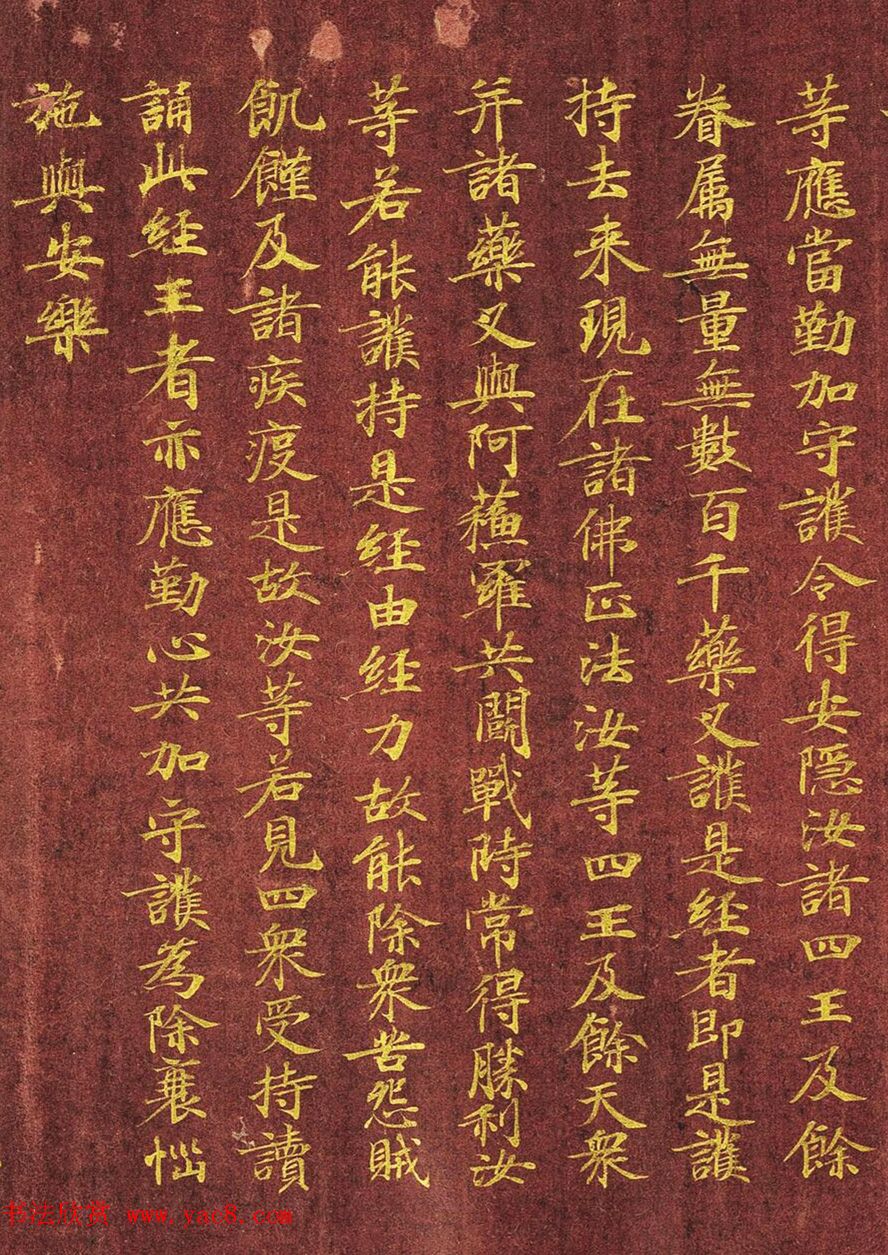 等應當勤加守護令得安隱汝諸四王及餘
眷属無量無數百千藥叉護是經者即是護
持去来現在諸佛正法汝等四王及餘天衆
并諸藥叉與阿蘓羅共鬪戰時常得勝利汝
等若能護持是經由經力故能除衆苦怨賊
飢饉及諸疾疫是故汝等若見四衆受持讀
誦此經王者亦應勤心共加守護為除襄惱
施與安樂
书法欣赏 www.yac8.com